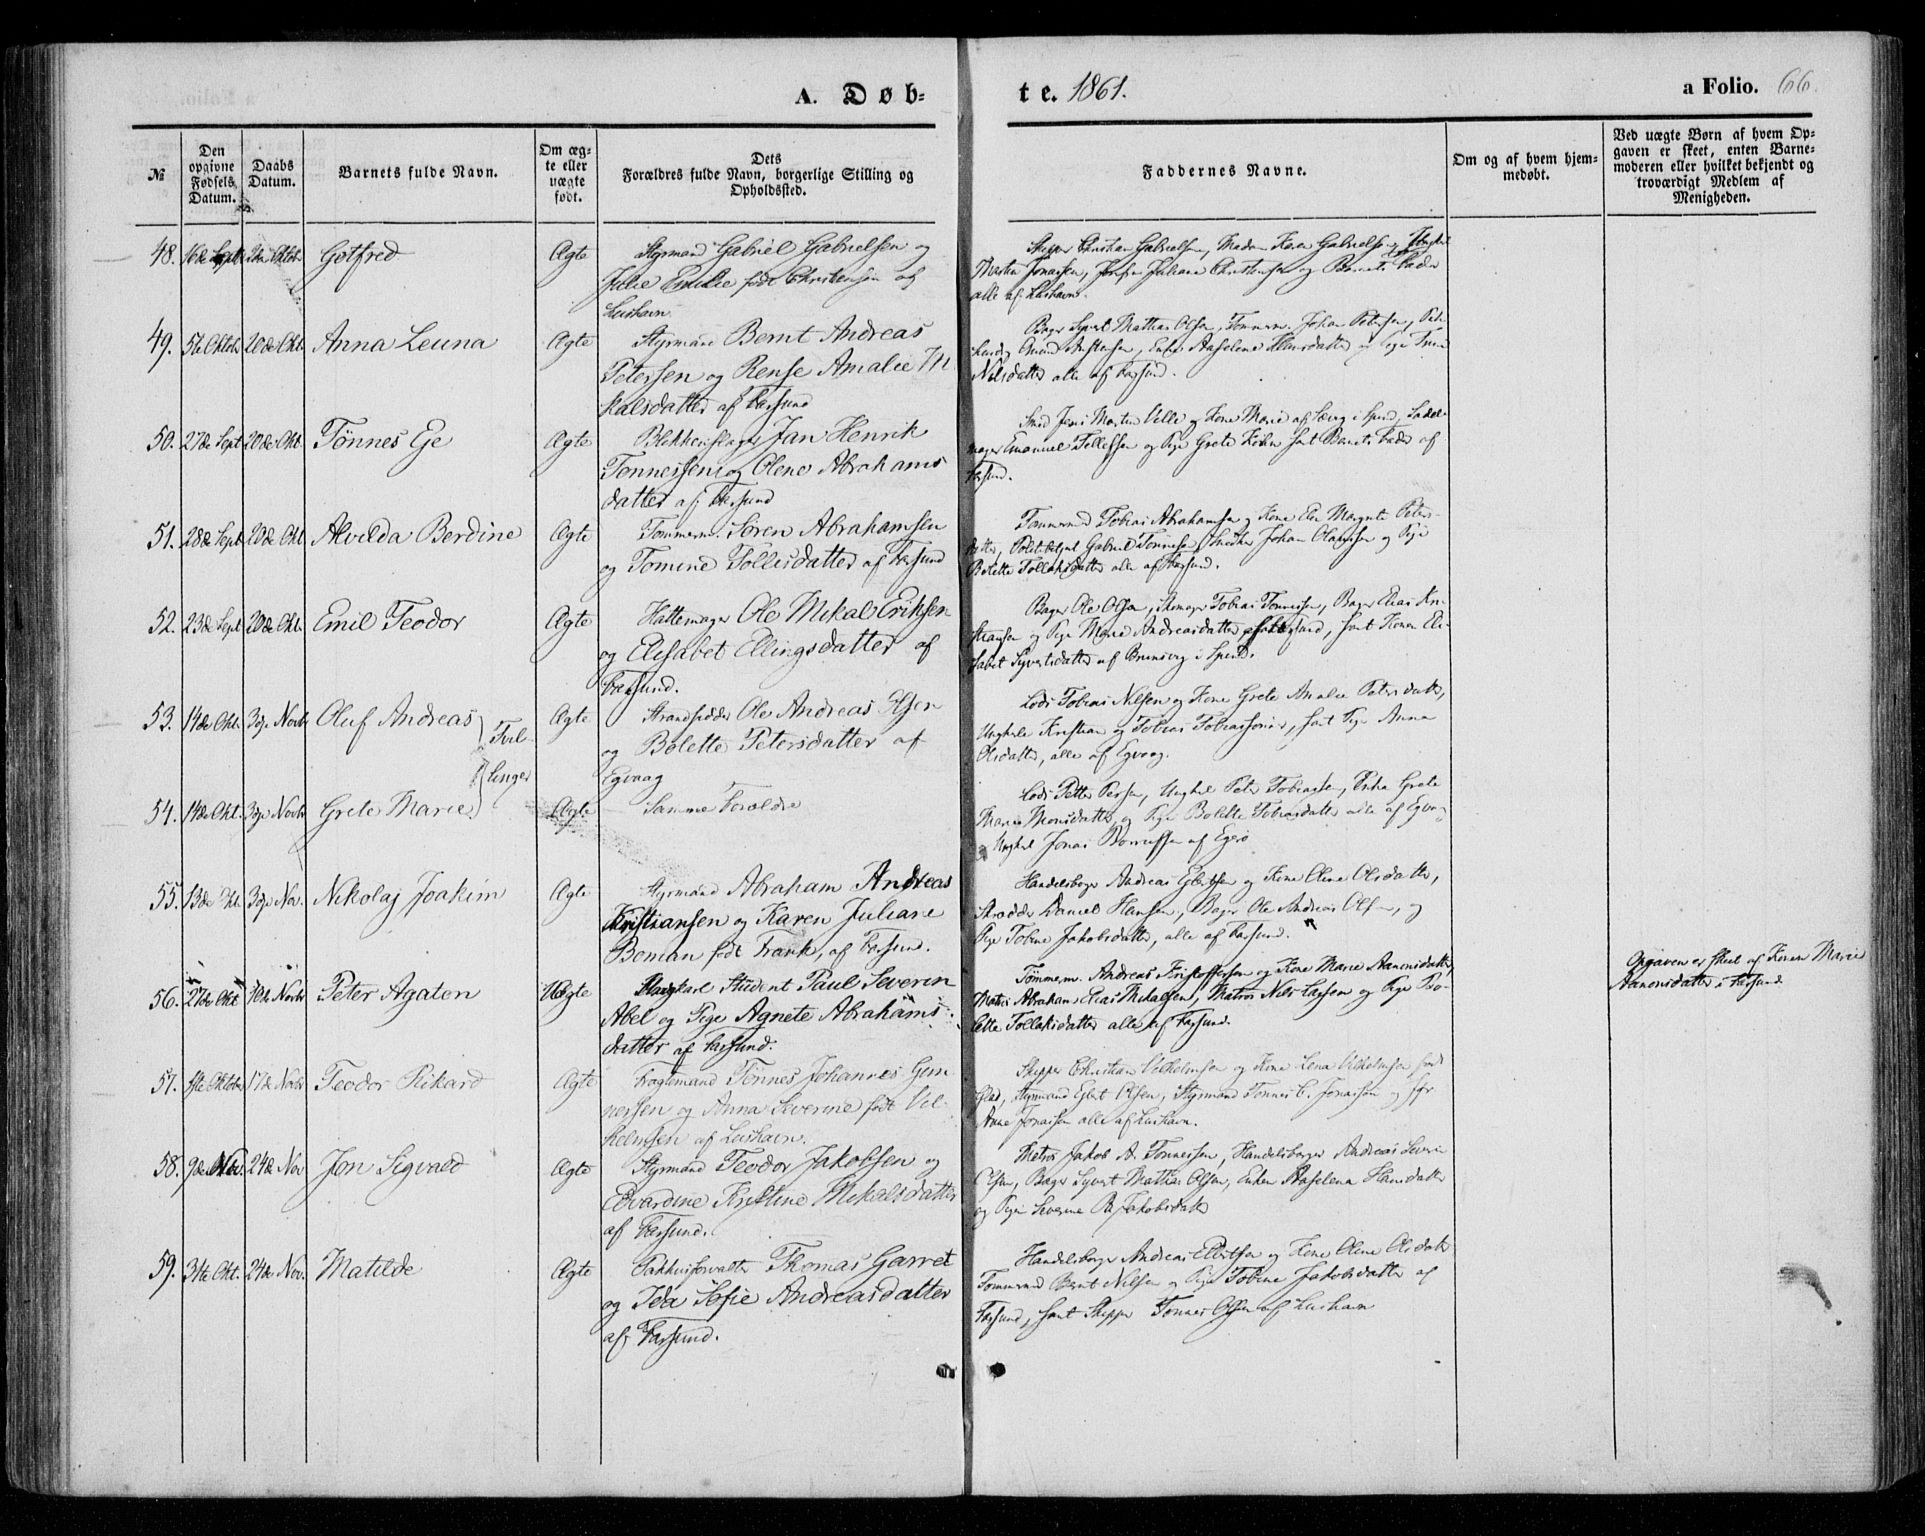 A. Døb-
te. 1861.
a Folio. 66.
№
Den opgivne Fødsels Datum.
Daabs Datum.
Barnets fulde Navn.
Om ægte eller uægte født.
Dets Forældres fulde Navn, borgerlige Stilling og Opholdssted.
Faddernes Navne.
Om og af hvem hjemmedøbt.
Ved uægte Børn af hvem Opgaven er skeet, enten Barnemoderen eller hvilket bekjendt og troværdigt Medlem af Menigheden.
48. 16de Sept Oktob. Gotfred Ægte Styrmand Gabriel Gabrielsen og
Julie Emilie født Christensen af
Lushavn
Skipper Christian Gabrielsen, Madam Karen Gabrielsen, Ungkarl
Martin Jonassen, Juliane Christensen og Barnets Fader
alle af Lushavn.
49. 5te Oktob. 20de Okt. Anna Leuna Ægte Styrmand Bernt Andreas
Petersen og Rense Amalie Mi
kalsdatter af Farsund
Bager Syvert Mathias Olsen, Tømmerm. Johan Petersen,
Enke Aaselene Hansdatter og Pige Trine
Nilsdatter alle af Farsund.
50. 27de Sept 20de Okt. Tønnes Eje Ægte Blikkenslager Jan Henrik
Tønnessen og Olene Abrahams
datter af Farsund
Smed Jens Morten Ville og Kone Marie af i Spind, Sadel-
mager Emanuel Tollefsen og Pige Grete samt Barnets Fader af
Farsund.
51. 28de Sept 20de Okt. Alvilda Berdine Ægte Tømmerm. Søren Abrahamsen
og Tomine Tollisdatter af Farsund
Tømmermd Tobias Abrahamsen og Kone Ellen Margrete Peters-
datter, Politibetjent Gabriel Tønnesen, Snedker Johan Olaussen og Pige
Bolette Tollaksdatter alle af Farsund.
52. 23de Sept 20de Okt. Emil Teodor Ægte Hattemager Ole Mikal Eriksen
og Elisabet Ellingsdatter af
Farsund.
Bager Ole Olsen, Skomager Tobias Tønnessen, Bager Elias Kri-
stiansen og Pige Marie Andreasdatter af Farsund, samt Konen Eli-
sabet Syvertsdatter af Brunsvig i Spind.
53. 14de Okt. 3die Novbr Oluf Andreas Tvil- Ægte Strandsidder Ole Andreas Olsen
og Bolette Petersdatter af
Egvaag
Lods Tobias Nilsen og Kone Grete Amalie Petersdatter,
Ungkarle Kristian og Tobias Tobiassønner, samt Pige Anna
Olsdatter, alle af Egvaag.
linger
54. 14de Okt. 3die Novbr Grete Marie Ægte Samme Forældre
Lods Petter Persen, Ungkarl Peter Tobiassen, Enke Grete
Marie Monsdatter, og Pige Bolette Tobiasdatter alle af Egvaag
Ungkarl Jonas af Egerø
55. 13de Okt. 3die Nov. Nikolaj Joakim Ægte Styrmand Abraham Andreas
Kristiansen og Karen Juliane
Boman født Frank, af Farsund.
Handelsborger Andreas Egbertsen og Kone Olene Olsdatter,
Skrædder Daniel Hansen, Bager Ole Andreas Olsen, og
Pige Tobine Jakobsdatter, alle af Farsund.
56. 27de Okt 10de Novbr Peter Agaton Uægte Ungkarl Student Paul Severin
Abel og Pige Agnete Abrahams-
datter af Farsund.
Tømmerm. Andreas Kristoffersen og Kone Marie Aanonsdatter,
Matros Abraham Elias Mikalsen, Matros Nils Larsson og Pige Bo-
lette Tollaksdatter alle af Farsund.
Opgaven er skeet af Konen Marie
Aanonsdatter i Farsund.
57. 1ste Oktober 17de Novbr Teodor Rikard Ægte Tønnes Johannes Gun-
nersen og Anna Severine født Vil-
helmsen af Lushavn.
Skipper Christian Vilhelmsen og Kone Lena Vilhelmsen født
Styrmand Egbert Olsen, Styrmand Tønnes C. Jonassen og
Anne Jonassen alle af Lushavn.
58. 9de Nov. 24de Nov Jon Sigvald Ægte Styrmand Teodor Jakobsen og
Edvardine Kristine Mikalsdatter
af Farsund.
Matros Jakob A. Tønnessen, Handelsborger Andreas Severin
Olsen, Bager Syvert Mathias Olsen, Enken Aaselena Hansdatter
og Pige Severine Jakobsdatter
59. 31te Okt. 24de Nov. Matilde Ægte Pakhusforvalter Thomas Garret
og Ida Sofie Andreasdatter
af Farsund.
Handelsborger Andreas Elbertsen og Kone Olene Olsdatter
Tømmermd Bernt Nilsen og Pige Tobine Jakobsdatter af
Farsund, samt Skipper Tønnes Olsen af Lushavn